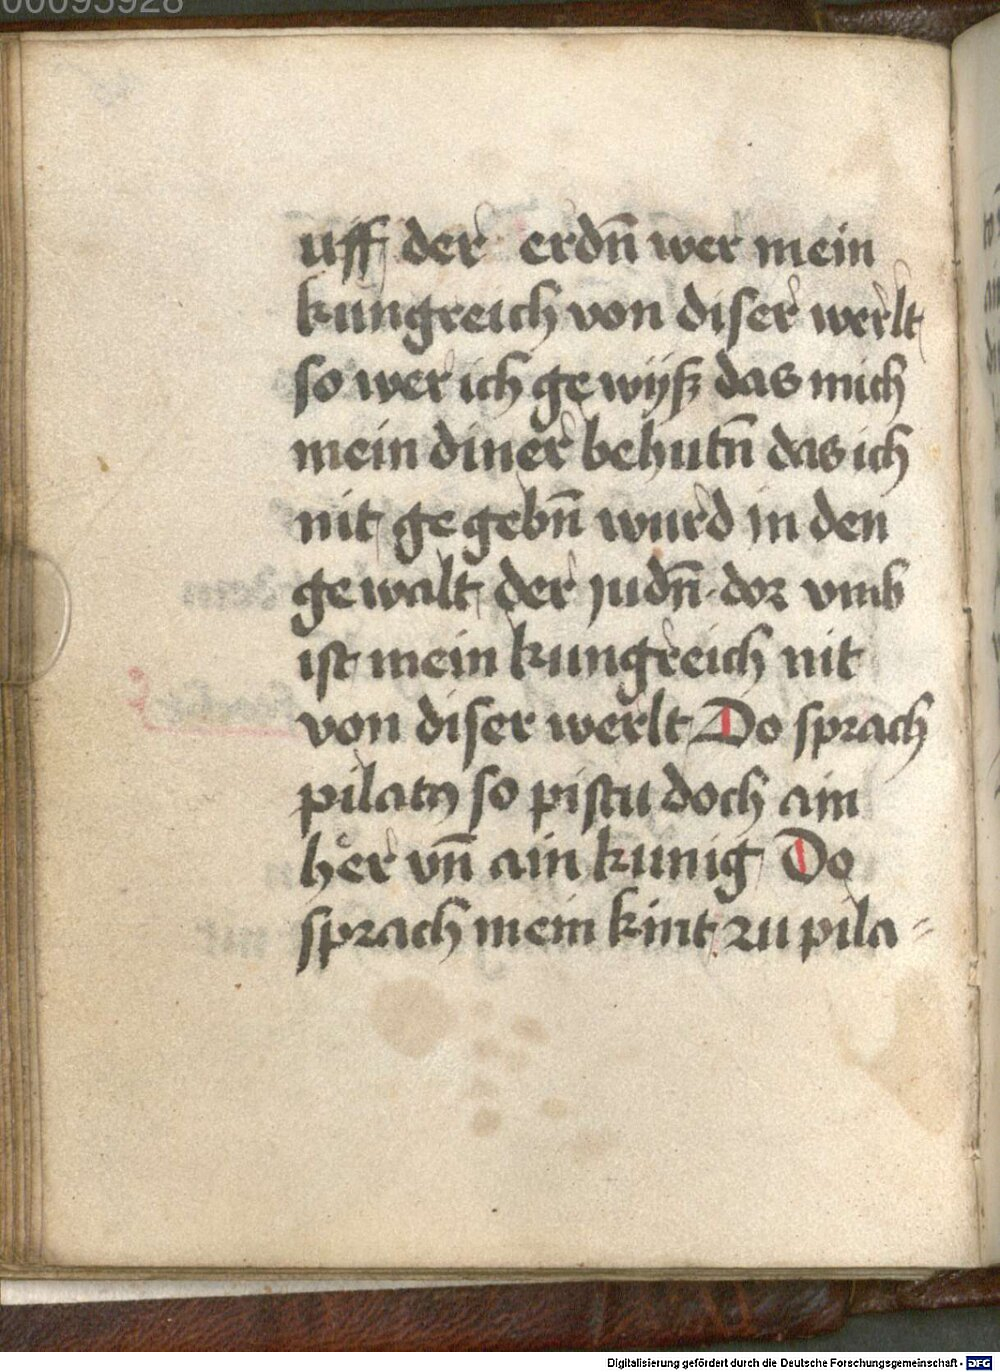 00095928
uff der erdn̄ wer mein
kungreich von diser werlt
so wer ich ge wyß das mich
mein diner behutn̄ das ich
nit ge gebn̄ wurd in den
ge walt der judn̄ dor vmb
ist mein kungreich nit
von diser werlt Do sprach
pilatus so pistu doch ain
her vn̄ ain kunig Do
sprach mein kint zu pila⸗
Digitalisierung gefördert durch die Deutsche Forschungsgemeinschaft - DFG